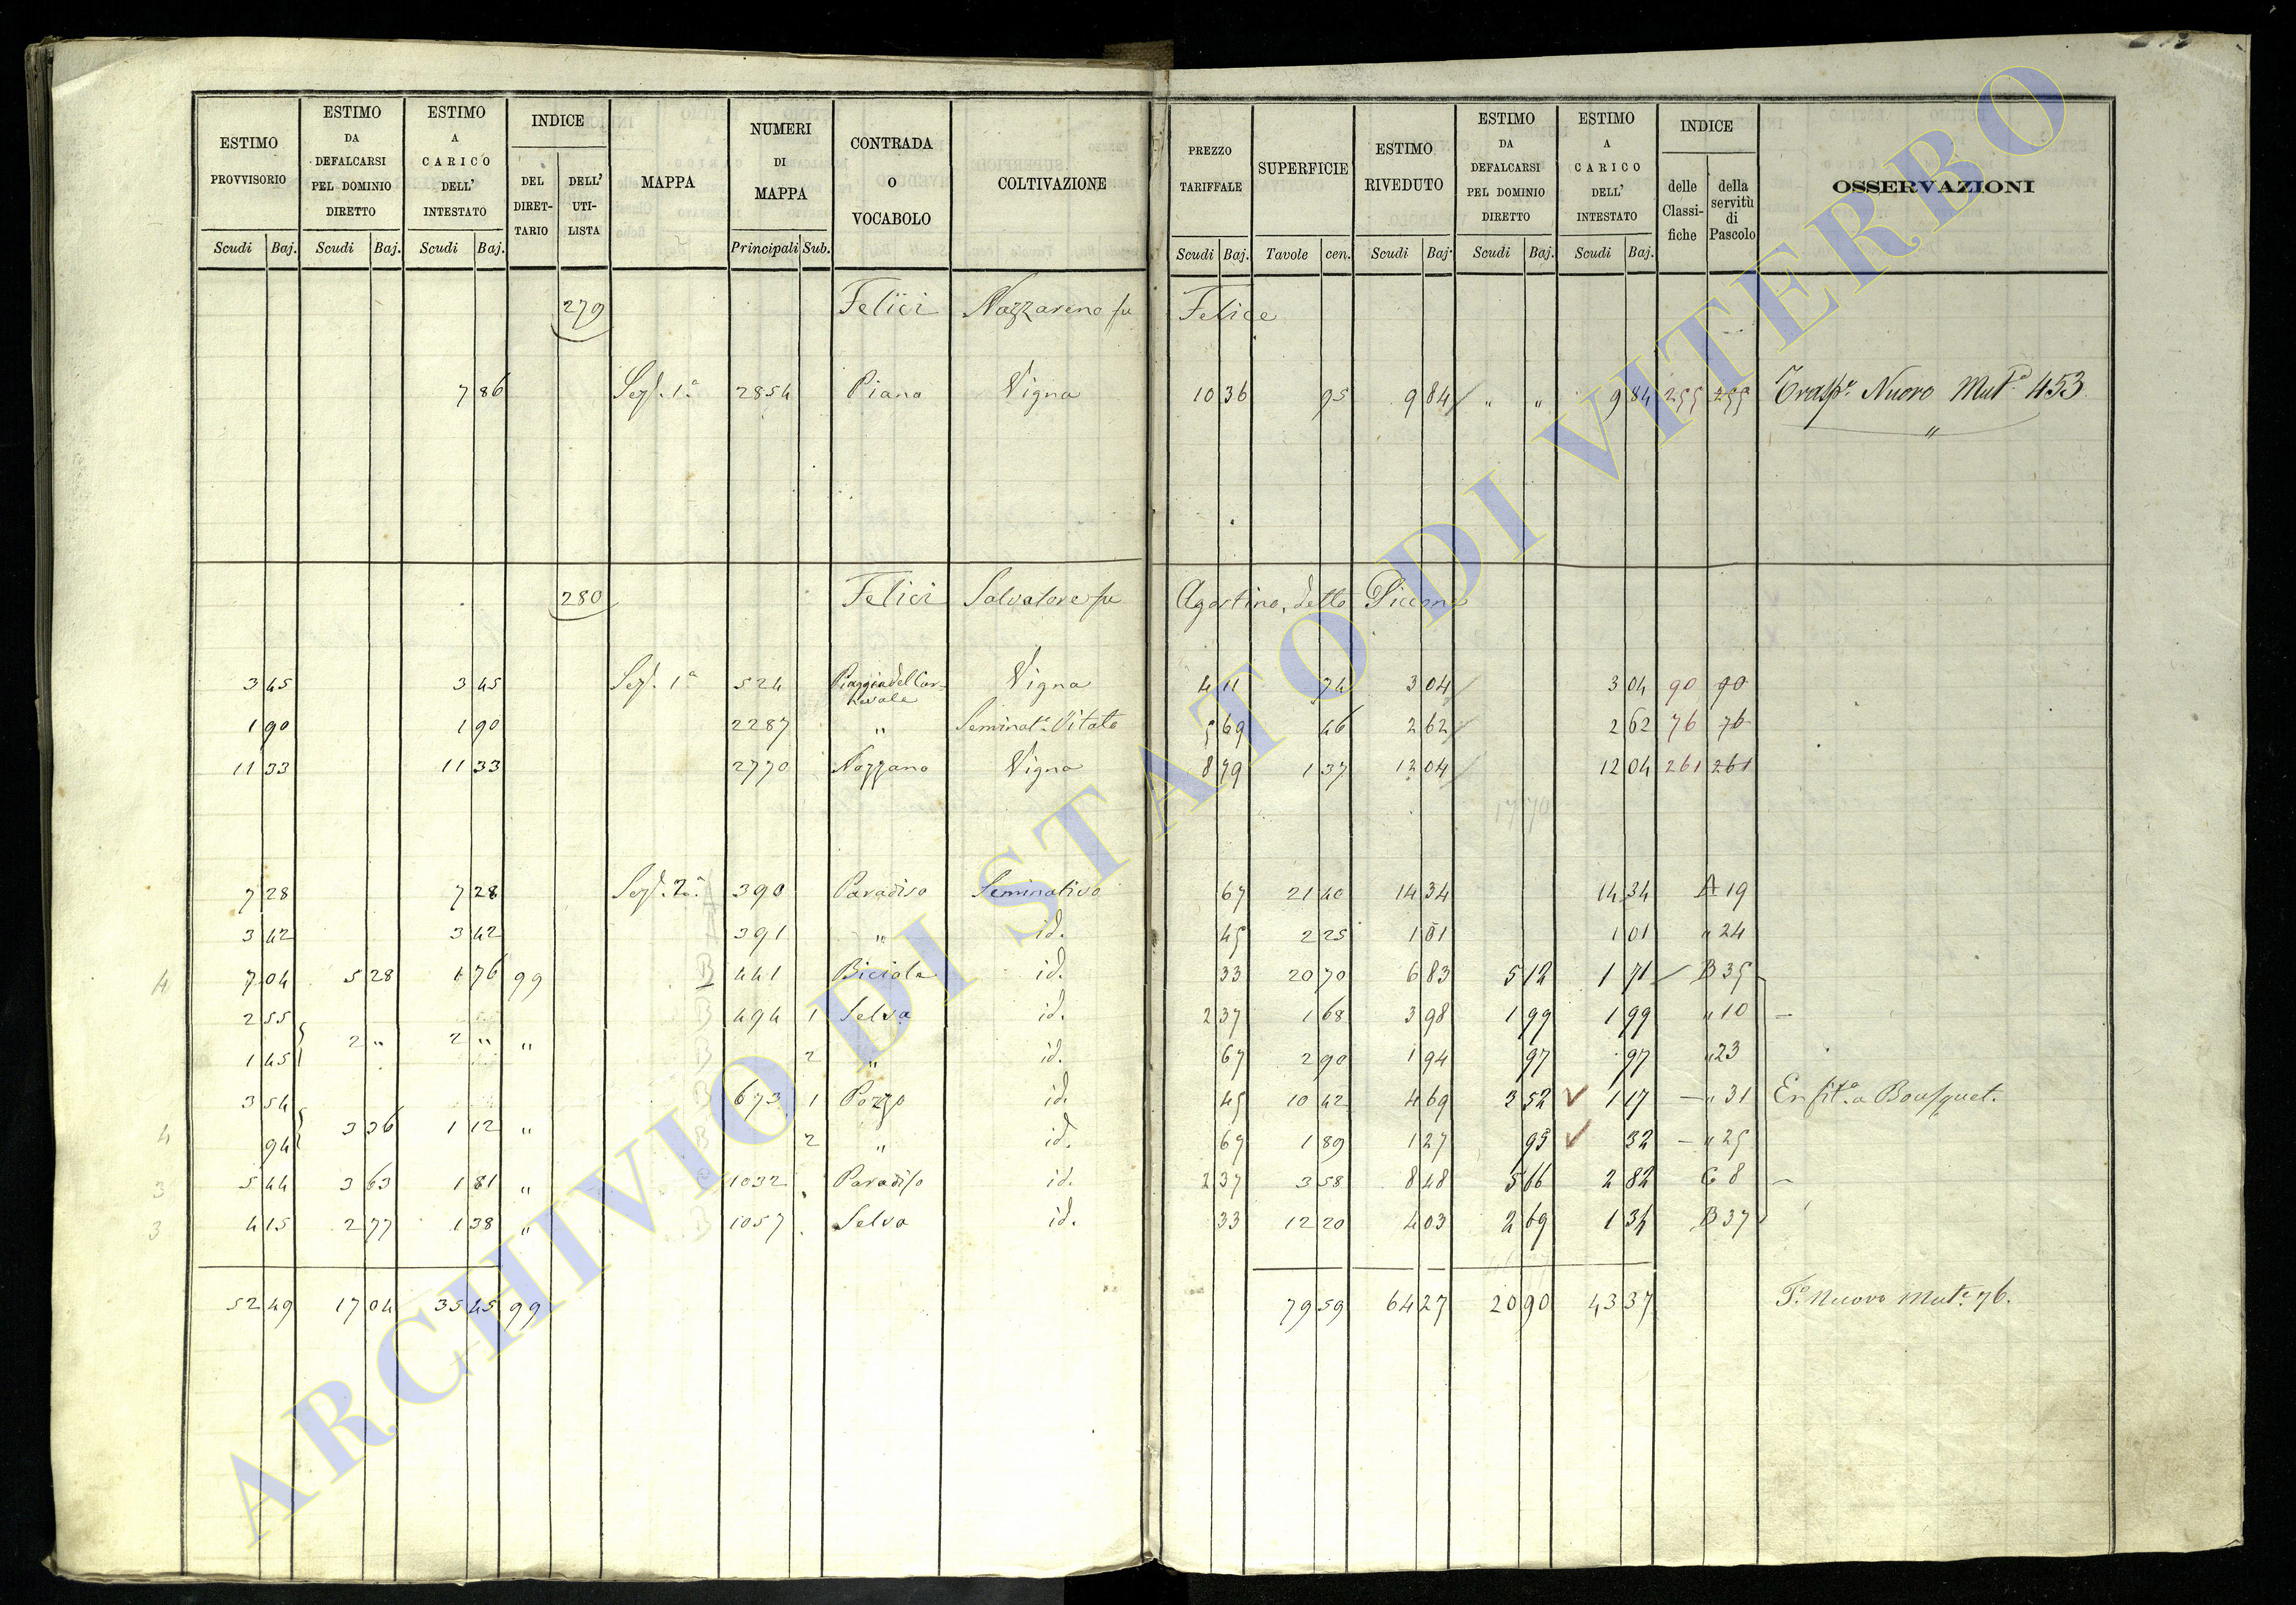 ESTIMO PROVVISORIO | ESTIMO DA DEFALCARSI PEL DOMINIO DIRETTO | ESTIMO A CARICO DELL' INTESTATO | INDICE DEL DIRETTARIO | DELL' UTILISTA | MAPPA | NUMERI DI MAPPA | CONTRADA O VOCABOLO | COLTIVAZIONE | PREZZO TARIFFALE | SUPERFICIE | ESTIMO RIVEDUTO | ESTIMO DA DEFALCARSI PEL DOMINIO DIRETTO | ESTIMO A CARICO DELL' INTESTATO | INDICE delle Classifiche | della servitù di Pascolo | OSSERVAZIONI
Scudi Baj. | Scudi Baj. | Scudi Baj. | Principali Sub. | Scudi Baj. | Tavole cen. | Scudi Baj. | Scudi Baj. | Scudi Baj.
279 Felici Nazzareno fu Felice
7 86 Sez. 1ª 2854 Piana Vigna 10 36 95 9 84 " " 9 84 255 255 Trasp. Nuovo Mut. 453
"
280 Felici Salvatore fu Agostino, detto
3 45 3 45 Sez. 1ª 524 Vigna 4 11 74 3 04 3 04 90 90
1 90 1 90 2287 " Seminat. Vitato 5 69 46 2 62 2 62 76 76
11 33 11 33 2770 Nazzano Vigna 8 79 1 37 12 04 12 04 261 261
1770
7 28 7 28 Sez. 2ª 390 Paradiso Seminativo 67 21 40 14 34 14 34 A 19
3 42 3 42 391 " id. 45 2 25 1 01 1 01 " 24
4 7 04 5 28 1 76 99 B 441 Biciola id. 33 20 70 6 83 5 12 1 71 B 35
2 55 B 494 1 Selva id. 2 37 1 68 3 98 1 99 1 99 " 10
2 " 2 " "
1 45 B 2 " id. 67 2 90 1 94 97 97 " 23
3 54 B 673 1 Pozzo id. 45 10 42 4 69 3 52 1 17 " 31 Enfit. a Bousquet.
3 36 1 12 "
4 94 B 2 " id. 67 1 89 1 27 95 32 " 25
3 5 44 3 63 1 81 " 1032 Paradiso id. 2 37 3 58 8 48 5 66 2 82 C 8
3 4 15 2 77 1 38 " B 1057 Selva id. 33 12 20 4 03 2 69 1 34 B 37
52 49 17 04 35 45 99 79 59 64 27 20 90 43 37 T. Nuovo Mut. 76.
ARCHIVIO DI STATO DI VITERBO